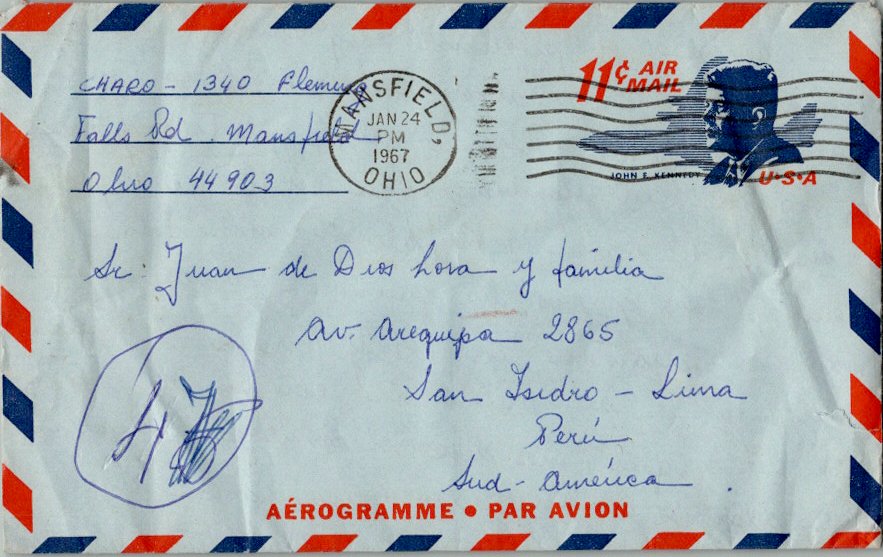 CHARO - 1340 Fleming
Falls Rd. Mansfield
Ohio 44903
MANSFIELD,
JAN 24
PM
1967
OHIO
11¢ AIR
MAIL
JOHN F. KENNEDY
U·S·A
Sr. Juan de Dios Lora y familia
Av. Arequipa 2865
San Isidro - Lima
Perú
Sud-América.
4
AÉROGRAMME • PAR AVION